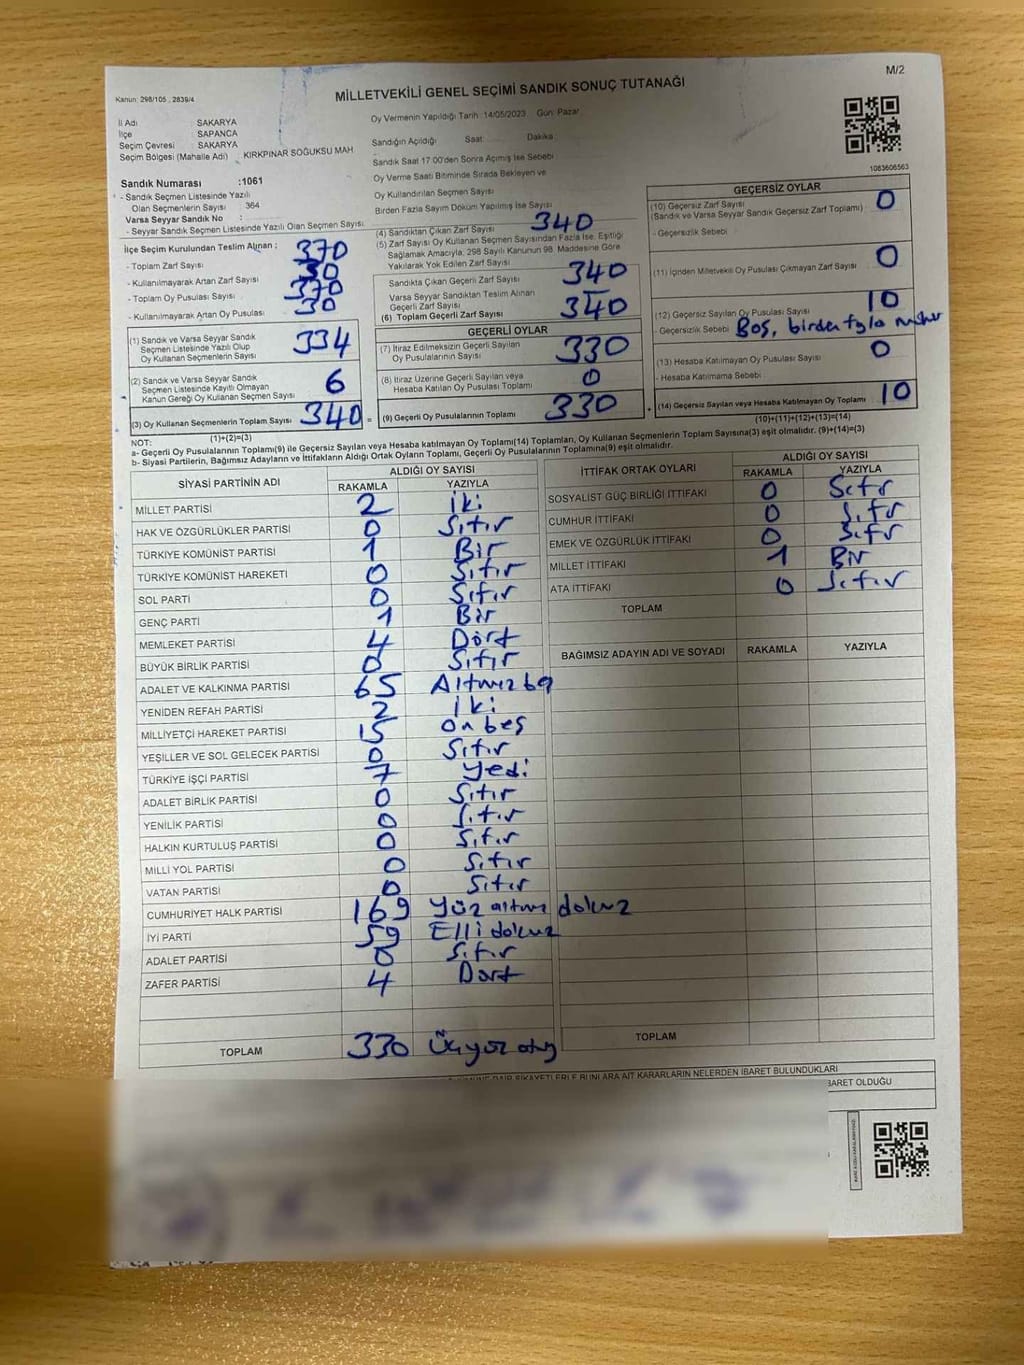 M/2
Kanun: 298/105, 2839/4
MİLLETVEKİLİ GENEL SEÇİMİ SANDIK SONUÇ TUTANAĞI
İl Adı : SAKARYA
İlçe : SAPANCA
Seçim Çevresi : SAKARYA
Seçim Bölgesi (Mahalle Adı) : KIRKPINAR SOĞUKSU MAH
Sandık Numarası :1061
- Sandık Seçmen Listesinde Yazılı
Olan Seçmenlerin Sayısı : 364
Varsa Seyyar Sandık No :
- Seyyar Sandık Seçmen Listesinde Yazılı Olan Seçmen Sayısı
Oy Vermenin Yapıldığı Tarih :14/05/2023 Gün: Pazar
Sandığın Açıldığı Saat: Dakika:
Sandık Saat 17.00'den Sonra Açımış İse Sebebi
Oy Verme Saati Bitiminde Sırada Bekleyen ve
Oy Kullandırılan Seçmen Sayısı
Birden Fazla Sayım Döküm Yapılmış İse Sayısı
1083606563
İlçe Seçim Kurulundan Teslim Alınan ;
- Toplam Zarf Sayısı : 370
- Kullanılmayarak Artan Zarf Sayısı : 30
- Toplam Oy Pusulası Sayısı : 370
- Kullanılmayarak Artan Oy Pusulası : 30
(1) Sandık ve Varsa Seyyar Sandık
Seçmen Listesinde Yazılı Olup
Oy Kullanan Seçmenlerin Sayısı 334
(2) Sandık ve Varsa Seyyar Sandık
Seçmen Listesinde Kayıtlı Olmayan
Kanun Gereği Oy Kullanan Seçmen Sayısı 6
(3) Oy Kullanan Seçmenlerin Toplam Sayısı 340 =
(1)+(2)=(3)
(4) Sandıktan Çıkan Zarf Sayısı 340
(5) Zarf Sayısı Oy Kullanan Seçmen Sayısından Fazla İse, Eşitliği
Sağlamak Amacıyla, 298 Sayılı Kanunun 98. Maddesine Göre
Yakılarak Yok Edilen Zarf Sayısı
Sandıkta Çıkan Geçerli Zarf Sayısı 340
Varsa Seyyar Sandıktan Teslim Alınan
Geçerli Zarf Sayısı —
(6) Toplam Geçerli Zarf Sayısı 340
GEÇERLİ OYLAR
(7) İtiraz Edilmeksizin Geçerli Sayılan
Oy Pusulalarının Sayısı 330
(8) İtiraz Üzerine Geçerli Sayılan veya
Hesaba Katılan Oy Pusulası Toplamı 0
(9) Geçerli Oy Pusulalarının Toplamı 330 +
GEÇERSİZ OYLAR
(10) Geçersiz Zarf Sayısı 0
(Sandık ve Varsa Seyyar Sandık Geçersiz Zarf Toplamı)
- Geçersizlik Sebebi
(11) İçinden Milletvekili Oy Pusulası Çıkmayan Zarf Sayısı 0
(12) Geçersiz Sayılan Oy Pusulası Sayısı 10
- Geçersizlik Sebebi Boş, birden fazla mühür
(13) Hesaba Katılmayan Oy Pusulası Sayısı 0
- Hesaba Katılmama Sebebi
(14) Geçersiz Sayılan veya Hesaba Katılmayan Oy Toplamı 10
(10)+(11)+(12)+(13)=(14)
NOT:
a- Geçerli Oy Pusulalarının Toplamı(9) ile Geçersiz Sayılan veya Hesaba katılmayan Oy Toplamı(14) Toplamları, Oy Kullanan Seçmenlerin Toplam Sayısına(3) eşit olmalıdır. (9)+(14)=(3)
b- Siyasi Partilerin, Bağımsız Adayların ve İttifakların Aldığı Ortak Oyların Toplamı, Geçerli Oy Pusulalarının Toplamına(9) eşit olmalıdır.
SİYASİ PARTİNİN ADI ALDIĞI OY SAYISI
RAKAMLA YAZIYLA
MİLLET PARTİSİ 2 İki
HAK VE ÖZGÜRLÜKLER PARTİSİ 0 Sıfır
TÜRKİYE KOMÜNİST PARTİSİ 1 Bir
TÜRKİYE KOMÜNİST HAREKETİ 0 Sıfır
SOL PARTİ 0 Sıfır
GENÇ PARTİ 1 Bir
MEMLEKET PARTİSİ 4 Dört
BÜYÜK BİRLİK PARTİSİ 0 Sıfır
ADALET VE KALKINMA PARTİSİ 65 Altmış beş
YENİDEN REFAH PARTİSİ 2 İki
MİLLİYETÇİ HAREKET PARTİSİ 15 on beş
YEŞİLLER VE SOL GELECEK PARTİSİ 0 Sıfır
TÜRKİYE İŞÇİ PARTİSİ 7 yedi
ADALET BİRLİK PARTİSİ 0 Sıfır
YENİLİK PARTİSİ 0 Sıfır
HALKIN KURTULUŞ PARTİSİ 0 Sıfır
MİLLİ YOL PARTİSİ 0 Sıfır
VATAN PARTİSİ 0 Sıfır
CUMHURİYET HALK PARTİSİ 169 Yüz altmış dokuz
İYİ PARTİ 59 Elli dokuz
ADALET PARTİSİ 0 Sıfır
ZAFER PARTİSİ 4 Dört
TOPLAM 330 Üçyüz otuz
İTTİFAK ORTAK OYLARI ALDIĞI OY SAYISI
RAKAMLA YAZIYLA
SOSYALİST GÜÇ BİRLİĞİ İTTİFAKI 0 Sıfır
CUMHUR İTTİFAKI 0 Sıfır
EMEK VE ÖZGÜRLÜK İTTİFAKI 0 Sıfır
MİLLET İTTİFAKI 1 Bir
ATA İTTİFAKI 0 Sıfır
TOPLAM
BAĞIMSIZ ADAYIN ADI VE SOYADI RAKAMLA YAZIYLA
TOPLAM
DAİR ŞİKAYETLERLE BUNLARA AİT KARARLARIN NELERDEN İBARET BULUNDUKLARI
İBARET OLDUĞU